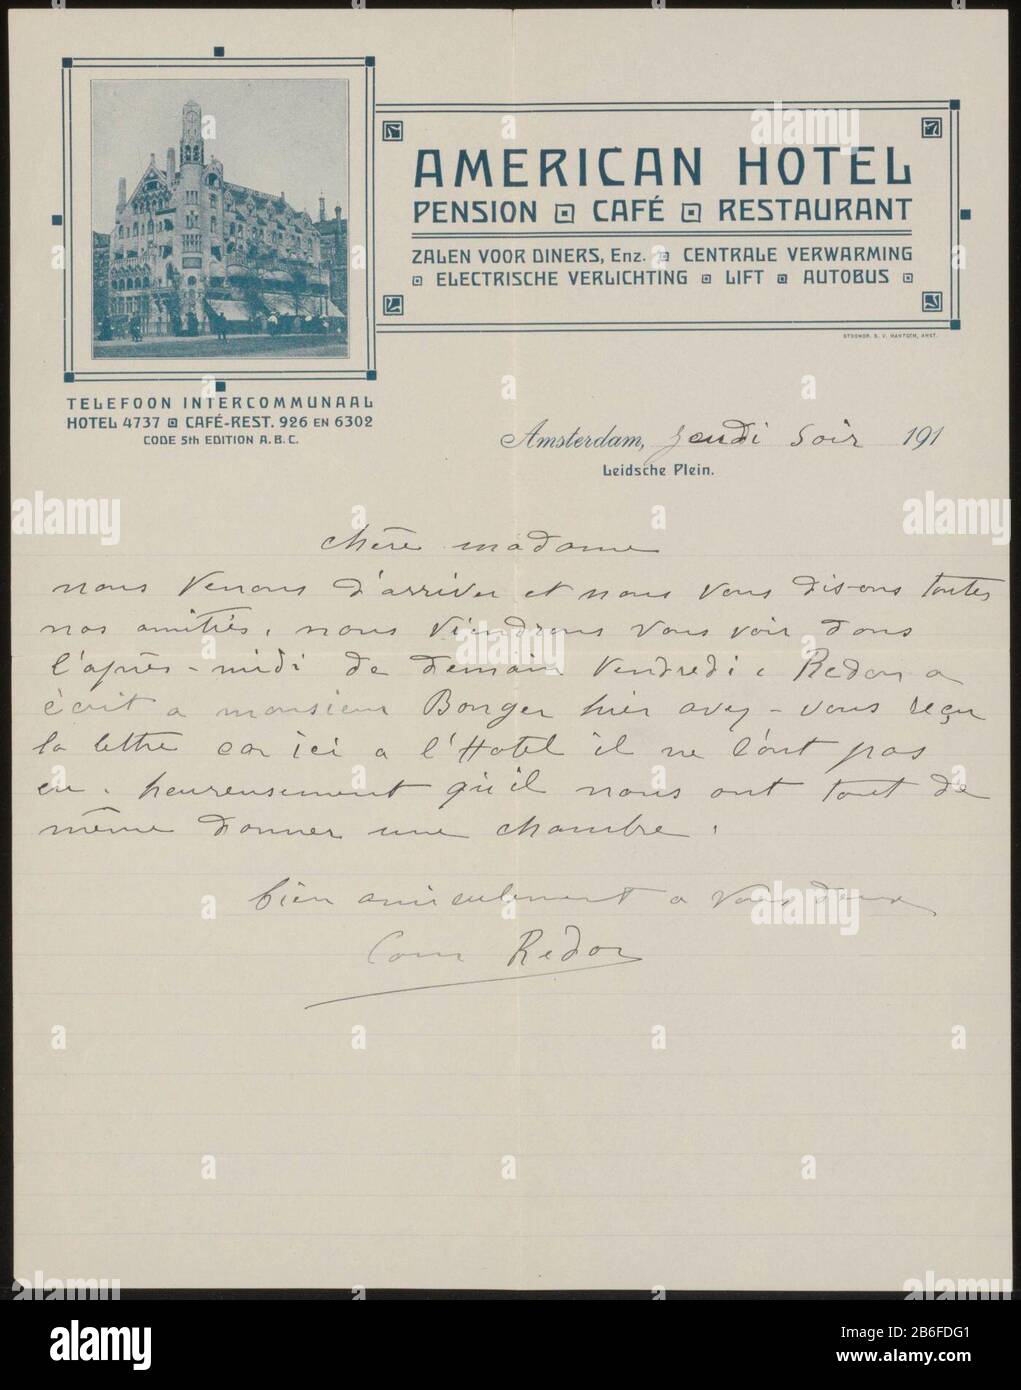 AMERICAN HOTEL
PENSION CAFÉ RESTAURANT
ZALEN VOOR DINERS, Enz. CENTRALE VERWARMING
ELECTRISCHE VERLICHTING LIFT AUTOBUS
STOOMDR. S. V. MANTGEM, AMST.
TELEFOON INTERCOMMUNAAL
HOTEL 4737 CAFÉ-REST. 926 EN 6302
CODE 5th EDITION A.B.C.
Amsterdam, jeudi soir 191
Leidsche Plein.
chère madame
nous venons d'arriver et nous vous disons toutes
nos amitiés. nous viendrons vous voir dans
l'après-midi de demain vendredi. Redon a
écrit a monsieur Bonger hier avez-vous reçu
la lettre car ici a l'Hotel il ne l'ont pas
eu. heureusement qu'il nous ont tout de
même donner une chambre.
bien amicalement a vous deux
Redon
alamy
Image ID: 2B6FDG1
www.alamy.com